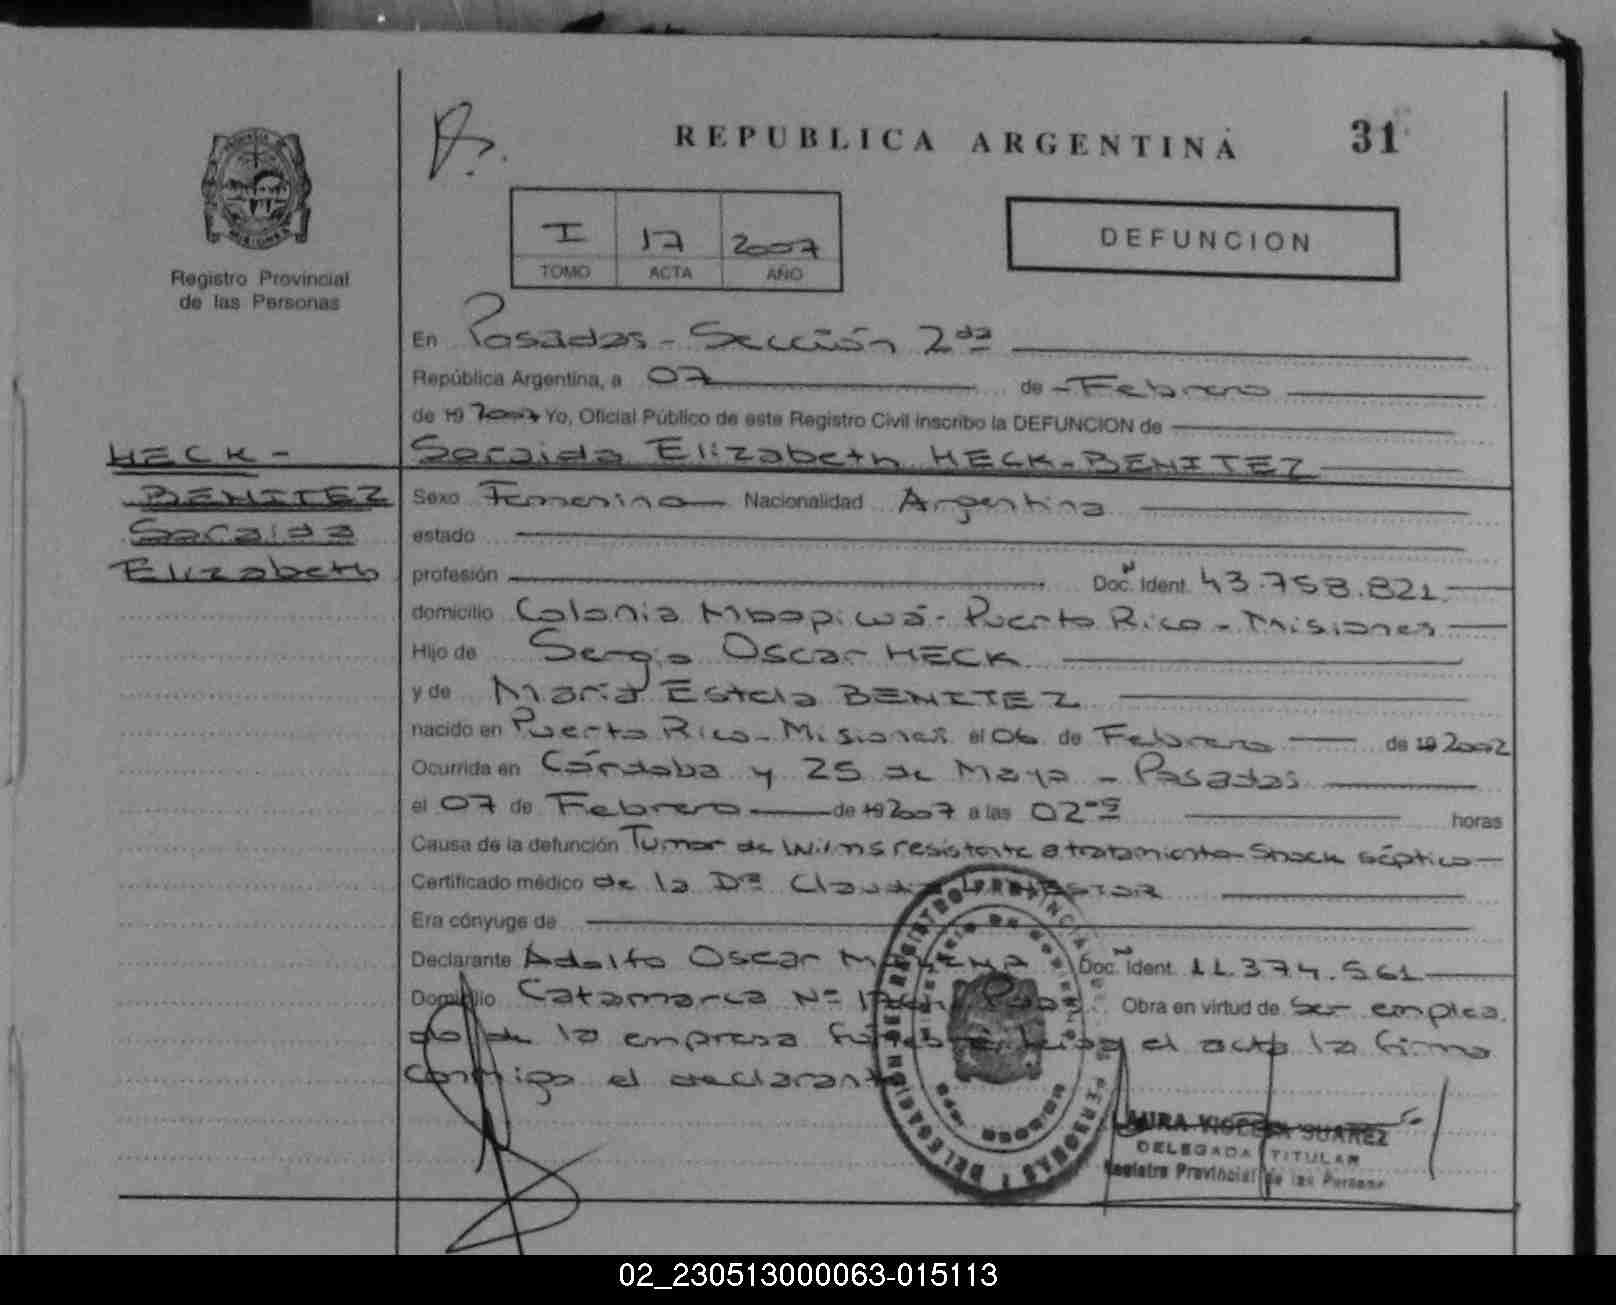 REPUBLICA ARGENTINA 31
MISIONES
Registro Provincial
de las Personas
I 17 2007
TOMO ACTA AÑO
DEFUNCION
En Posadas - Sección 2da
República Argentina, a 07 de - Febrero
de 19 2007 Yo, Oficial Público de este Registro Civil inscribo la DEFUNCION de
HECK - Saraida Elizabeth HECK - BENITEZ
BENITEZ Sexo Femenino Nacionalidad Argentina
Saraida estado
Elizabeth profesión Doc. Ident. 43.758.821
domicilio Colonia Mbopicuá - Puerto Rico - Misiones
Hijo de Sergio Oscar HECK
y de María Estela BENITEZ
nacido en Puerto Rico - Misiones el 06 de Febrero de 19 2002
Ocurrida en Córdoba y 25 de Mayo - Posadas
el 07 de Febrero de 19 2007 a las 02 horas
Causa de la defunción Tumor de Wilms resistente a tratamiento - Shock séptico -
Certificado médico de la Dra Claudia
Era cónyuge de
Declarante Adolfo Oscar Doc. Ident. 11.374.561
Domicilio Catamarca Nº Obra en virtud de ser emplea
do de la empresa el acta la firma
conmigo el declarante
DELEGACION REGISTRO PROVINCIAL DE LAS PERSONAS
LAURA VIOLETA SUAREZ
DELEGADA TITULAR
Registro Provincial de las Personas
02_230513000063-015113